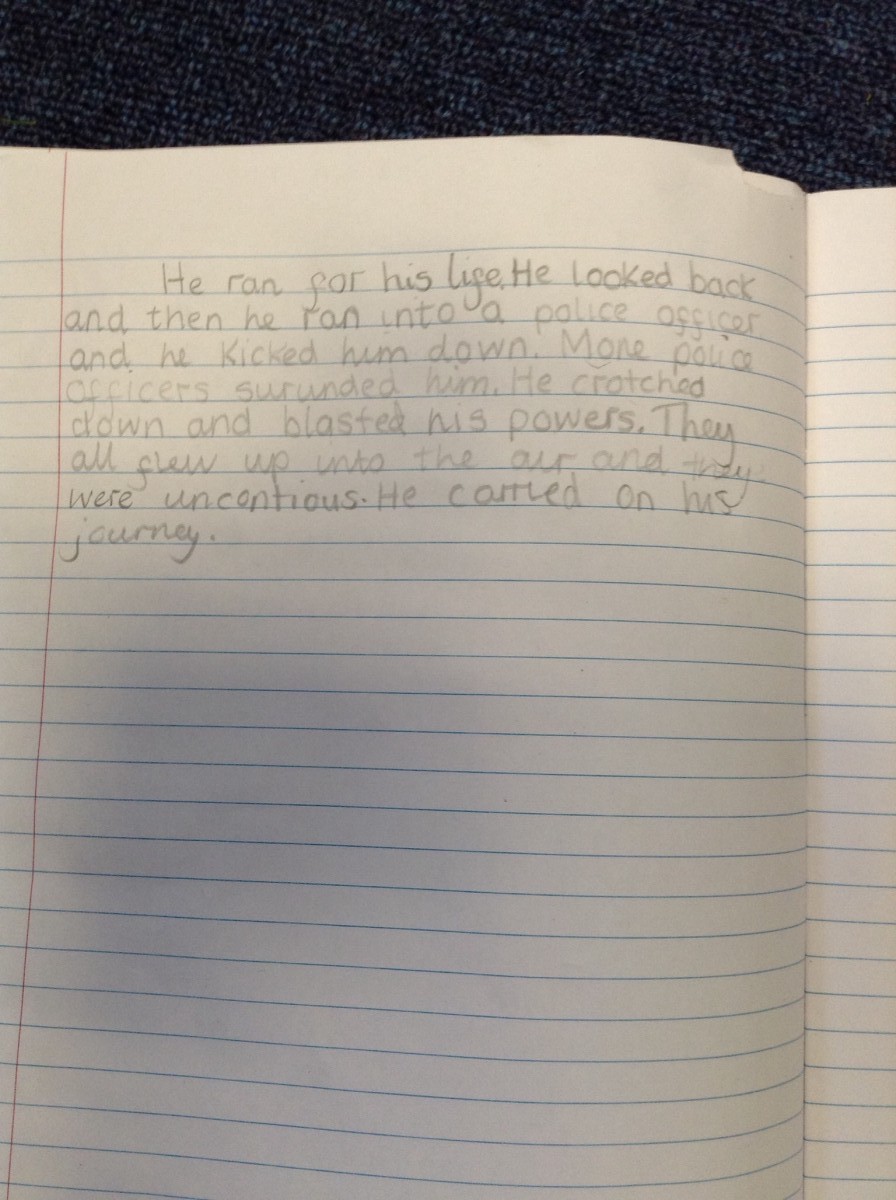 He ran for his life. He looked back
and then he ran into a police officer
and he kicked him down. More police
officers surunded him. He crotched
down and blasted his powers. They
all flew up into the air and they
were uncontious. He carried on his
journey.